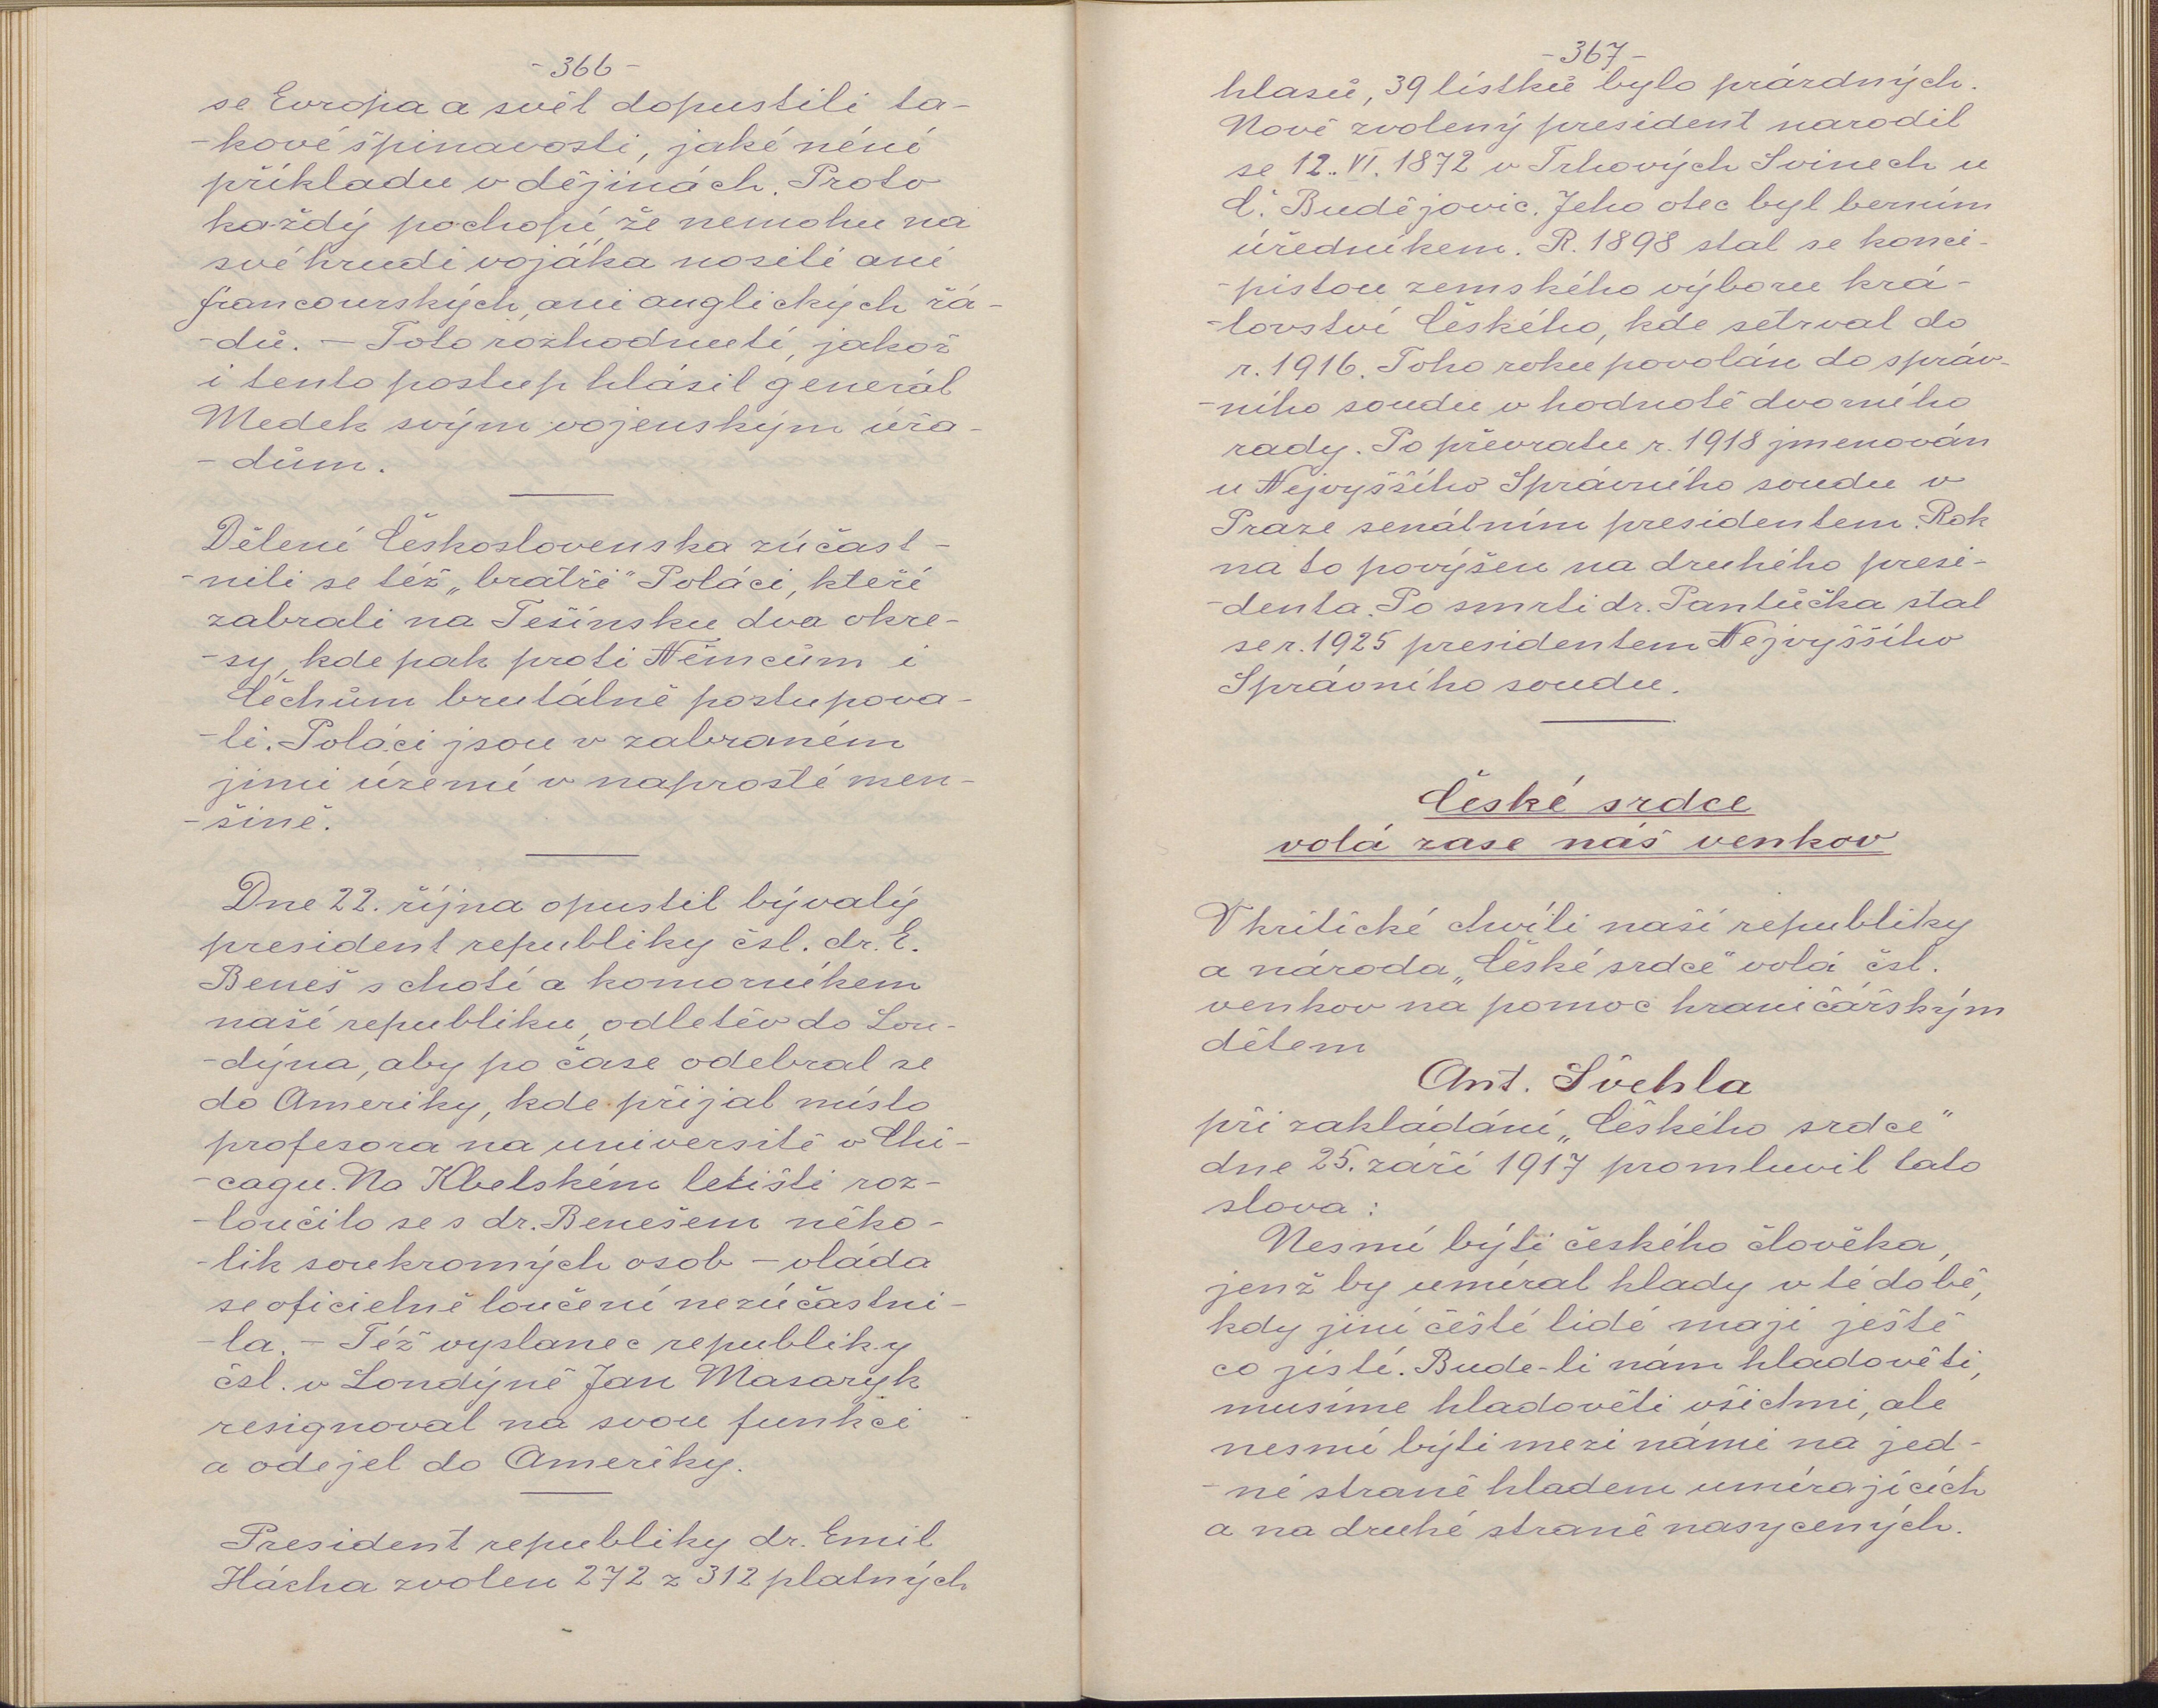 - 366 -
se Evropa a svět dopustili ta-
-kové špinavosti, jaké néní
příkladu v dějinách. Proto
každý pochopí že nemohu na
své hrudi vojáka nositi ani
francourských, ani anglických řá-
-dů. — Toto rozhodnutí, jakož
i tento postup hlásil generál
Medek svým vojenským úřa-
-dům.
Dělení Československa zúčast-
-nili se též „bratři" Poláci, kteří
zabrali na Tešínsku dva okre-
-sy, kde pak proti Němcům i
Čechům brutálně postupova-
-li. Poláci jsou v zabraném
jimi území v naprosté men-
-šině.
Dne 22. října opustil bývalý
president republiky čsl. dr. E.
Beneš s chotí a komorníkem
naší republiku, odletěv do Lon-
-dýna, aby po čase odebral se
do Ameriky, kde přijal místo
profesora na universitě v Chi-
-cagu. Na Kbelském letišti roz-
-loučilo se s dr. Benešem něko-
-lik soukromých osob — vláda
se oficielně loučení nezúčastni-
-la. — Též vyslanec republiky
čsl. v Londýně Jan Masaryk
resignoval na svou funkci
a odejel do Ameriky.
President republiky dr. Emil
Hácha zvolen 272 z 312 platných
- 367 -
hlasů, 39 lístků bylo prázdných.
Nově zvolený president narodil
se 12. VI. 1872 v Trhových Svinech u
Č. Budějovic. Jeho otec byl berním
úředníkem. R. 1898 stal se konci-
-pistou zemského výboru krá-
-lovství Českého, kde setrval do
r. 1916. Toho roku povolán do správ-
-ního soudu v hodnotě dvorního
rady. Po převratu r. 1918 jmenován
u Nejvyššího Správního soudu v
Praze senátním presidentem. Rok
na to povýšen na druhého presi-
-denta. Po smrti dr. Pantůčka stal
se r. 1925 presidentem Nejvyššího
Správního soudu.
České srdce
volá zase náš venkov
V kritické chvíli naší republiky
a národa „České srdce" volá čsl.
venkov na pomoc hraničářským
dětem
Ant. Švehla
při zakládání „Českého srdce"
dne 25. září 1917 promluvil tato
slova:
Nesmí býti českého člověka,
jenž by umíral hlady v té době,
kdy jiní čeští lidé mají ještě
co jísti. Bude-li nám hladověti,
musíme hladověti všichni, ale
nesmí býti mezi námi na jed-
-né straně hladem umírajících
a na druhé straně nasycených.